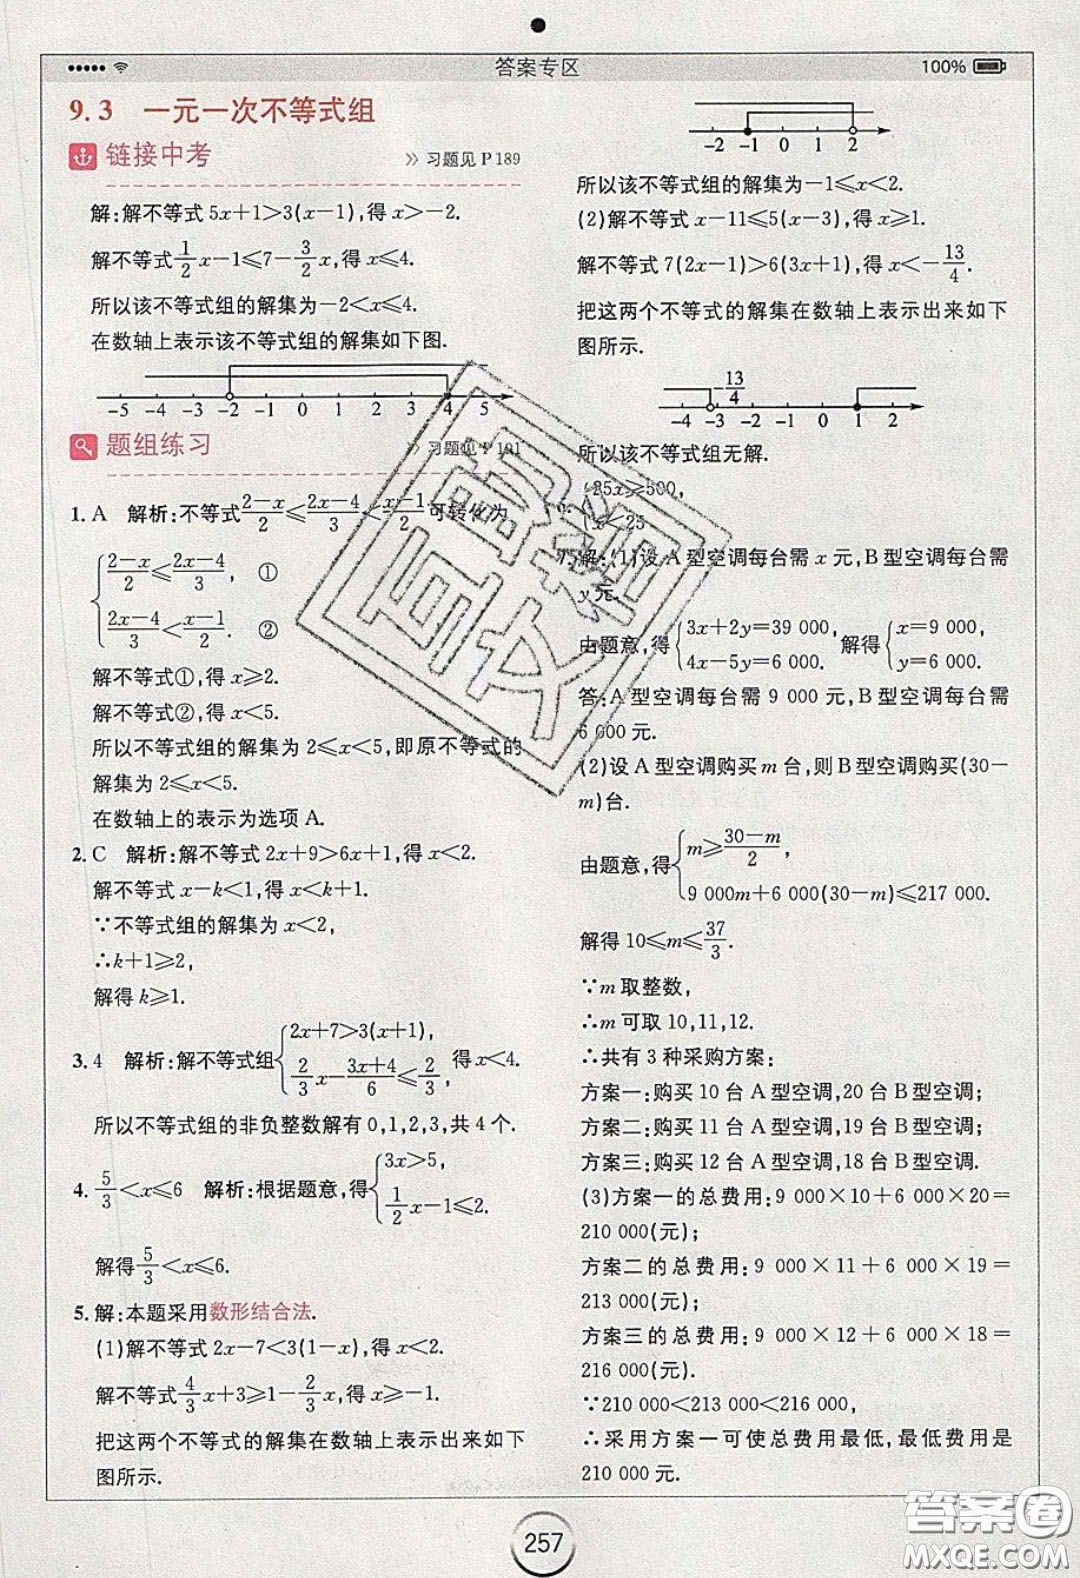 答案专区
100%
9.3 一元一次不等式组
链接中考
》习题见P189
解:解不等式5x+1>3(x-1),得x>-2.
解不等式1/2x-1≤7-3/2x,得x≤4.
所以该不等式组的解集为-2<x≤4.
在数轴上表示该不等式组的解集如下图.
-5 -4 -3 -2 -1 0 1 2 3 4 5
题组练习
》习题见P191
1. A 解析:不等式(2-x)/2≤(2x-4)/3<(x-1)/2可转化为
{(2-x)/2≤(2x-4)/3, ①
(2x-4)/3<(x-1)/2. ②
解不等式①,得x≥2.
解不等式②,得x<5.
所以不等式组的解集为2≤x<5,即原不等式的
解集为2≤x<5.
在数轴上的表示为选项A.
2. C 解析:解不等式2x+9>6x+1,得x<2.
解不等式x-k<1,得x<k+1.
∵不等式组的解集为x<2,
∴k+1≥2,
解得k≥1.
3. 4 解析:解不等式组{2x+7>3(x+1), 2/3x-(3x+4)/6≤2/3, 得x<4.
所以不等式组的非负整数解有0,1,2,3,共4个.
4. 5/3<x≤6 解析:根据题意,得{3x>5, 1/2x-1≤2.
解得5/3<x≤6.
5. 解:本题采用数形结合法.
(1)解不等式2x-7<3(1-x),得x<2.
解不等式4/3x+3≥1-2/3x,得x≥-1.
把这两个不等式的解集在数轴上表示出来如下
图所示.
-2 -1 0 1 2
所以该不等式组的解集为-1≤x<2.
(2)解不等式x-11≤5(x-3),得x≥1.
解不等式7(2x-1)>6(3x+1),得x<-13/4.
把这两个不等式的解集在数轴上表示出来如下
图所示.
-13/4
-4 -3 -2 -1 0 1 2
所以该不等式组无解.
{25x≥500,
x<25
7. 解:(1)设A型空调每台需x元,B型空调每台需
y元.
由题意,得{3x+2y=39 000, 4x-5y=6 000. 解得{x=9 000, y=6 000.
答:A型空调每台需9 000元,B型空调每台需
6 000元.
(2)设A型空调购买m台,则B型空调购买(30-
m)台.
由题意,得{m≥(30-m)/2, 9 000m+6 000(30-m)≤217 000.
解得10≤m≤37/3.
∵m取整数,
∴m可取10,11,12.
∴共有3种采购方案:
方案一:购买10台A型空调,20台B型空调;
方案二:购买11台A型空调,19台B型空调;
方案三:购买12台A型空调,18台B型空调.
(3)方案一的总费用:9 000×10+6 000×20=
210 000(元);
方案二的总费用:9 000×11+6 000×19=
213 000(元);
方案三的总费用:9 000×12+6 000×18=
216 000(元).
∵210 000<213 000<216 000,
∴采用方案一可使总费用最低,最低费用是
210 000元.
257
答案圈
MXQE.COM